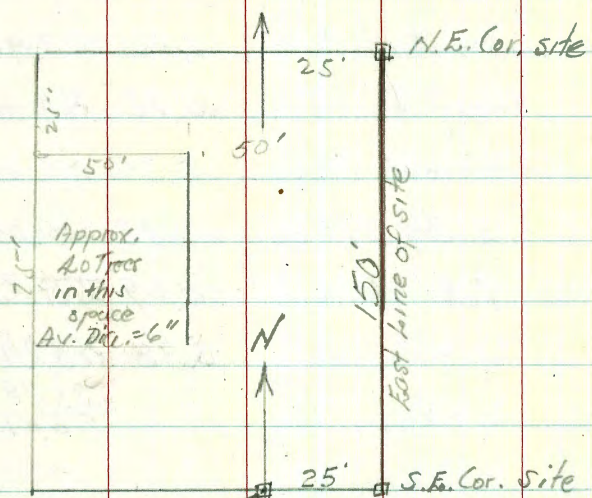 N.E. Cor. site
25'
25'
50'
50'
Approx.
Trees
in this
space
Av. Dia. = 6"
75'
150'
East Line of site
N
25'
S.E. Cor. Site